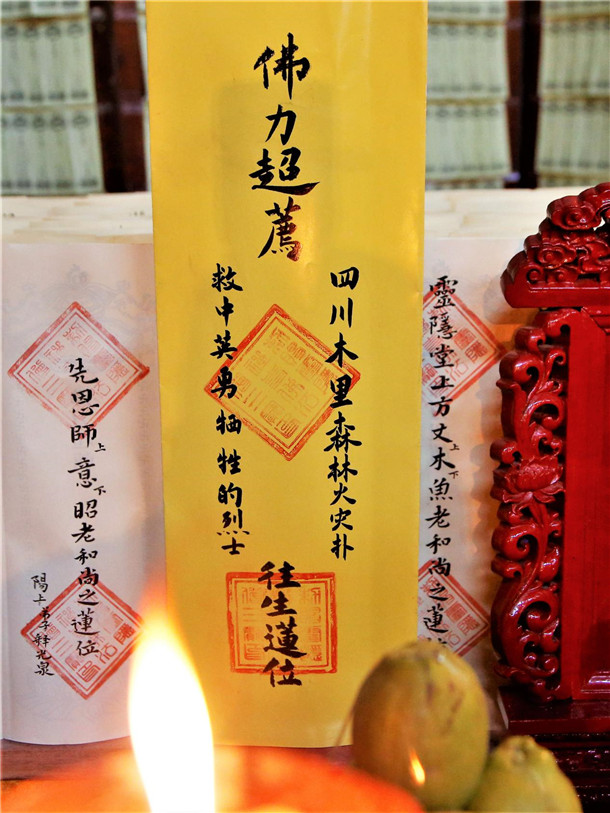 佛力超薦
四川木里森林火灾扑
救中英勇牺牲的烈士
往生蓮位
靈隱堂上方丈上木下漁老和尚之蓮
先恩師上意下昭老和尚之蓮位
陽上弟子釋光泉